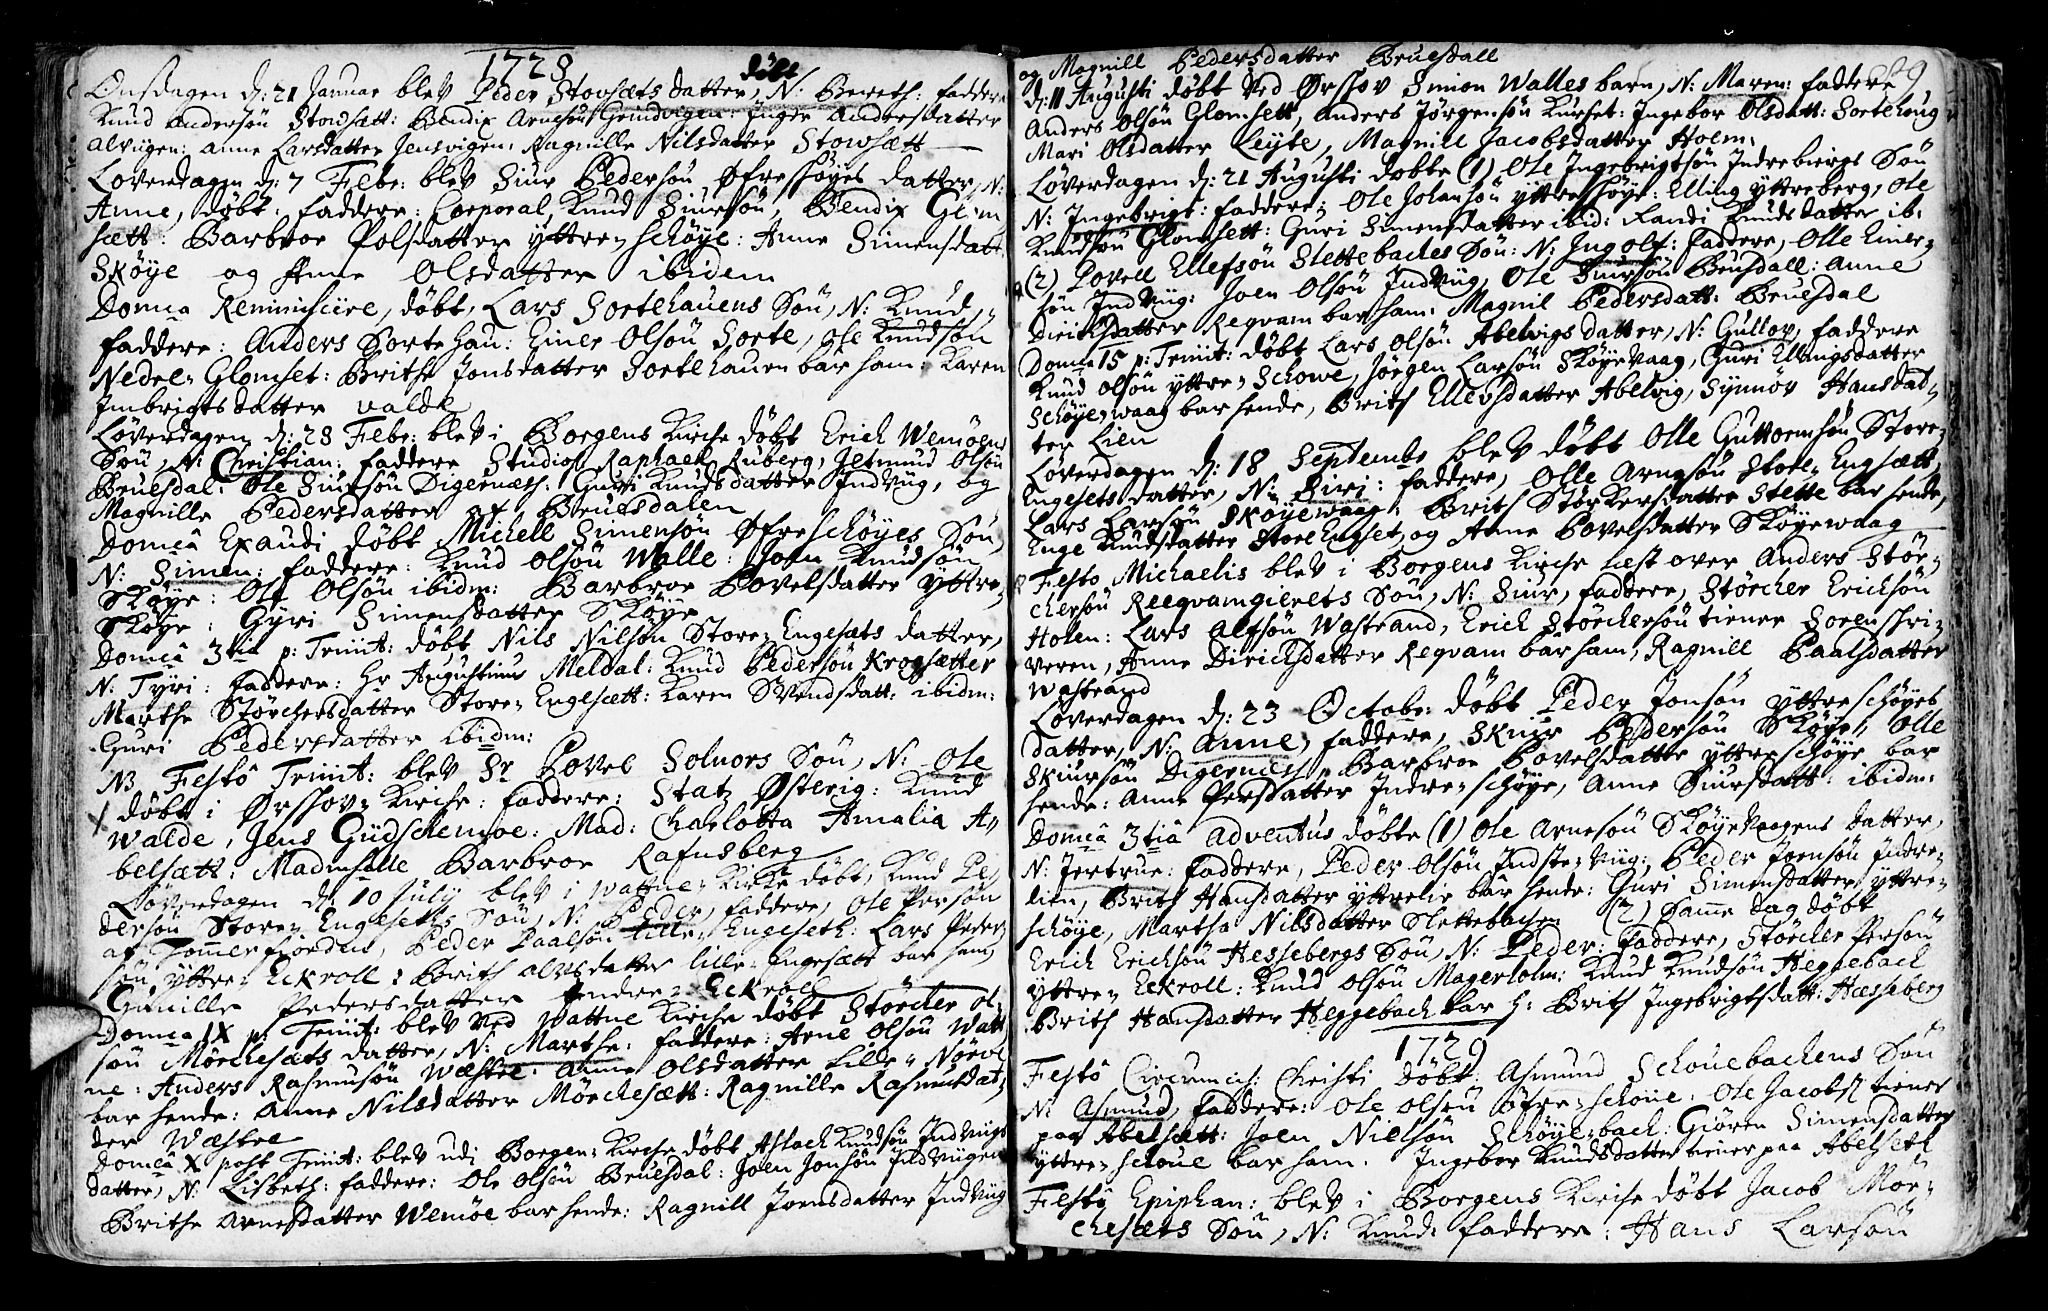 1728
døbt
Onsdagen d: 21 Januar blev Peder Stovsæts datter, N: Bereth: faddere
Knud andersøn Stowsætt: Bendix Arnesøn Grindvigen: Inger Andersdatter
alvigen: Anne Larsdatter Jensvigen: Ragnille Nilsdatter Stowsætt
Løverdagen d: 7 Febr: blev Siur Pedersøn Øfreskøyes datter, N:
Anne, døbt: faddere: Corporal Knud Siursøn, Bendix Glom
sætt: Barbroe Polsdatter yttre=schøye: Anne Simensdatt:
Skøye og Anne Olsdatter ibidem
Domca Reminiscire, døbt, Lars Sortehauens Søn, N: Knud,
faddere: Anders Sortehau: Einer Olsøn Sorte, Ole Knudsøn
Nedre=Glomset: Brithe Jonsdatter Sortehauen bar ham: Karen
Imbrigtsdatter valde
Løverdagen d: 28 Febr: blev i Borgens Kirche døbt Erich Wemøens
Søn, N: Christian: faddere Studios Raphael Ruberg, Jetmund Olsøn
Bruesdal: Ole Siursøn Digernæss: Guri Knudsdatter Indviig, og
Magnille Pedersdatter af Bruesdalen
Domca Exaudi døbt Michell Simensøn Øfreschøyes Søn,
N: Simen: faddere: Knud Olsøn Walle: Joen Knudsøn
Skøye: Ole Olsøn ibidm: Barbroe Povelsdatter yttre
Skøye: Gyri Simensdatter Skøye
Domca 3tia p: Trinit: døbt Nils Nilsøn Store=Engesæts datter,
N: Tyri: faddere: Hr Augustinus Meldal: Knud Pedersøn Krogsætter
Marthe Størchersdatter Store=Engesætt: Karen Svendsdatt: ibidm:
Guri Pedersdatter ibidm:
NB Festo Trinit: blev Sr Povel Solnors Søn, N: Ole
døbt i Ørsshov=Kirche: faddere: Statz Østerig: Knud
Walde, Jens Gudschemoe: Mad: Charlotta Amalia A=
belsætt: Madmselle Barbroe Rafnsberg
Løverdagen d: 10 July blev i Wattne=Kirke døbt, Knud Pe=
dersøn Store=Engeseths Søn, N: Peder, faddere, Ole Persøn
af Tommerfiorden, Peder Paalsøn Lille=Engeseth: Lars Peder
søn yttre=Eckroll: Brith alvsdatter lille=Engesætt bar ham
Gunille Pedersdatter Indre=Eckroll
Domca IX p: Trinit: blev ved Wattne Kirche døbt Størcher Ol=
søn Mørchesæts datter, N: Marthe: faddere: Arne Olsøn Watt
ne: Anders Rasmusøn Wæstre: Anne Olsdatter Lille=Nørve
bar hende: Anne Nilsdatter Mørchesætt: Ragnille Rasmusdat=
ter Wæstre
Domca X post Trinit: blev udi Borgen=Kirche døbt Aslach Knudsøn Indviigs
datter, N: Lisbeth: faddere: Ole Olsøn Bruesdal: Joen Jonsøn Indviigen
Brithe Arnesdatter Wemøe bar hende: Ragnill Joensdatter Indviig
og Magnill Pedersdatter Bruesdall
d: 11 Augusti døbt ved Ørsshov Simon Walles barn, N: Maren: faddere
Anders Olsøn Glomsett, Anders Jørgensøn Kurset: Ingebor Olsdatt: Sortehaug
Mari Olsdatter Leyte, Magnill Jacobsdatter Holm:
Løverdagen d: 21 Augusti døbte (1) Ole Ingebrigtsøn Indrebiergs Søn
N: Ingebrigt: faddere: Ole Johansøn yttreshøye: Elling yttreberg, Ole
Knudsøn Glomsett: Guri Simensdatter ibid: Randi Knudsdatter ib:
(2) Povell Ellefsøn Slettebaches Søn: N: Ingolf: faddere, Olle Einer=
søn Indviig: Joen Olsøn Indviig, Ole Siursøn Bruesdall: Anne
Dirichsdatter Reqvam bar ham: Magnil Pedersdatt: Bruesdal
Domca 15 p: Trinit: døbt Lars Olsøn Abelvigs datter, N: Gullov, faddere
Knud Olsøn yttre=Schowe, Jørgen Larsøn Skøyevaag, Guri Ellingsdatter
Schøye=waag bar hende, Brith Ellevsdatter Abelvig, Synnøv Hansdat=
ter Lien
Løverdagen d: 18 Septembr blev døbt Olle Guttormsøn Store=
Engesets datter, N: Siri: faddere, Olle Arnesøn Store=Engsætt,
Lars Larsøn Skøyewaag: Brith Størkersdatter Slette bar hende,
Enge Knudsdatter Store Engset, og Anne Povelsdatter Skøyewaag
Festo Michaelis blev i Borgens Kirche læst over Anders Stør=
chersøn Reeqvamgierets Søn, N: Siur, faddere, Størcher Erichsøn
Holen: Lars Alfsøn Wastrand, Erich Størchersøn tiener Sorenskri=
veren, Anne Dirichsdatter Reqvam bar ham, Ragnill Paalsdatter
Wastrand
Løverdagen d: 23 Octobr: døbt Peder Jonsøn yttreschøyes
datter, N: Anne, faddere, Skiur Pedersøn Skøye, Olle
Skiursøn Digernæss, Barbroe Povelsdatter yttreschøye bar
hende: Anne Persdatter Indre=schøye, Anne Siursdatt: ibidm:
Domca 3tia Adventus døbte (1) Ole Arnesøn Skøyevaagens datter,
N: Jertrue: faddere, Peder Olsøn Indste=Viig: Peder Joensøn Indre=
lien, Brith Hansdatter yttrelie bar hende: Guri Simensdatter yttre=
schøye, Martha Nilsdatter Slettebachen (2) Samme dag døbt
Erich Erichsøn Hessebergs Søn, N: Peder: faddere, Størcher Persøn
yttre=Eckroll: Knud Olsøn Magerholm: Knud Knudsøn Heggebach
Brith Hansdatter Heggebach bar h: Brith Ingebrigtsdatt: Hæsseberg
1729
Festo Circumcis: Christi døbt Asmund Schouebachens Søn
N: Asmud, faddere: Ole Olsøn Øfre=schøue: Ole Jacobs: tiener
paa Abelsætt: Joen Nielsøn Schøye=bach: Giøren Simensdatter
yttre=schoue bar ham: Ingebor Knudsdatter tiener paa Abelsett
Festo Epiphan: blev i Borgens Kirche døbt Jacob Mør=
chesæts Søn, N: Knud: faddere: Hans Larsøn